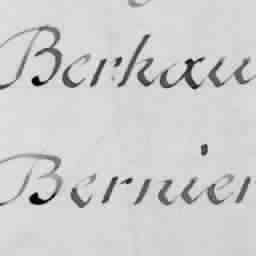 Berhau
Bernier